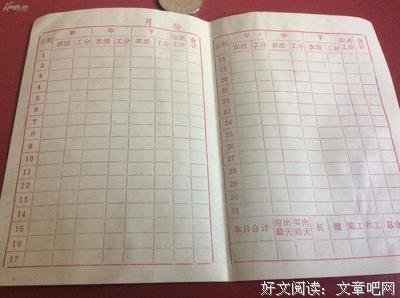 月 份
日期 早 中 下 合计
农活 工分 农活 工分 农活 工分 工分
1
2
3
4
5
6
7
8
9
10
11
12
13
14
15
16
17
日期 早 中 下 合计
农活 工分 农活 工分 农活 工分 工分
18
19
20
21
22
23
24
25
26
27
28
29
30
31
本月合计 应出勤天 实出勤天 长 奖工 扣工 总合
好文阅读：文章吧网